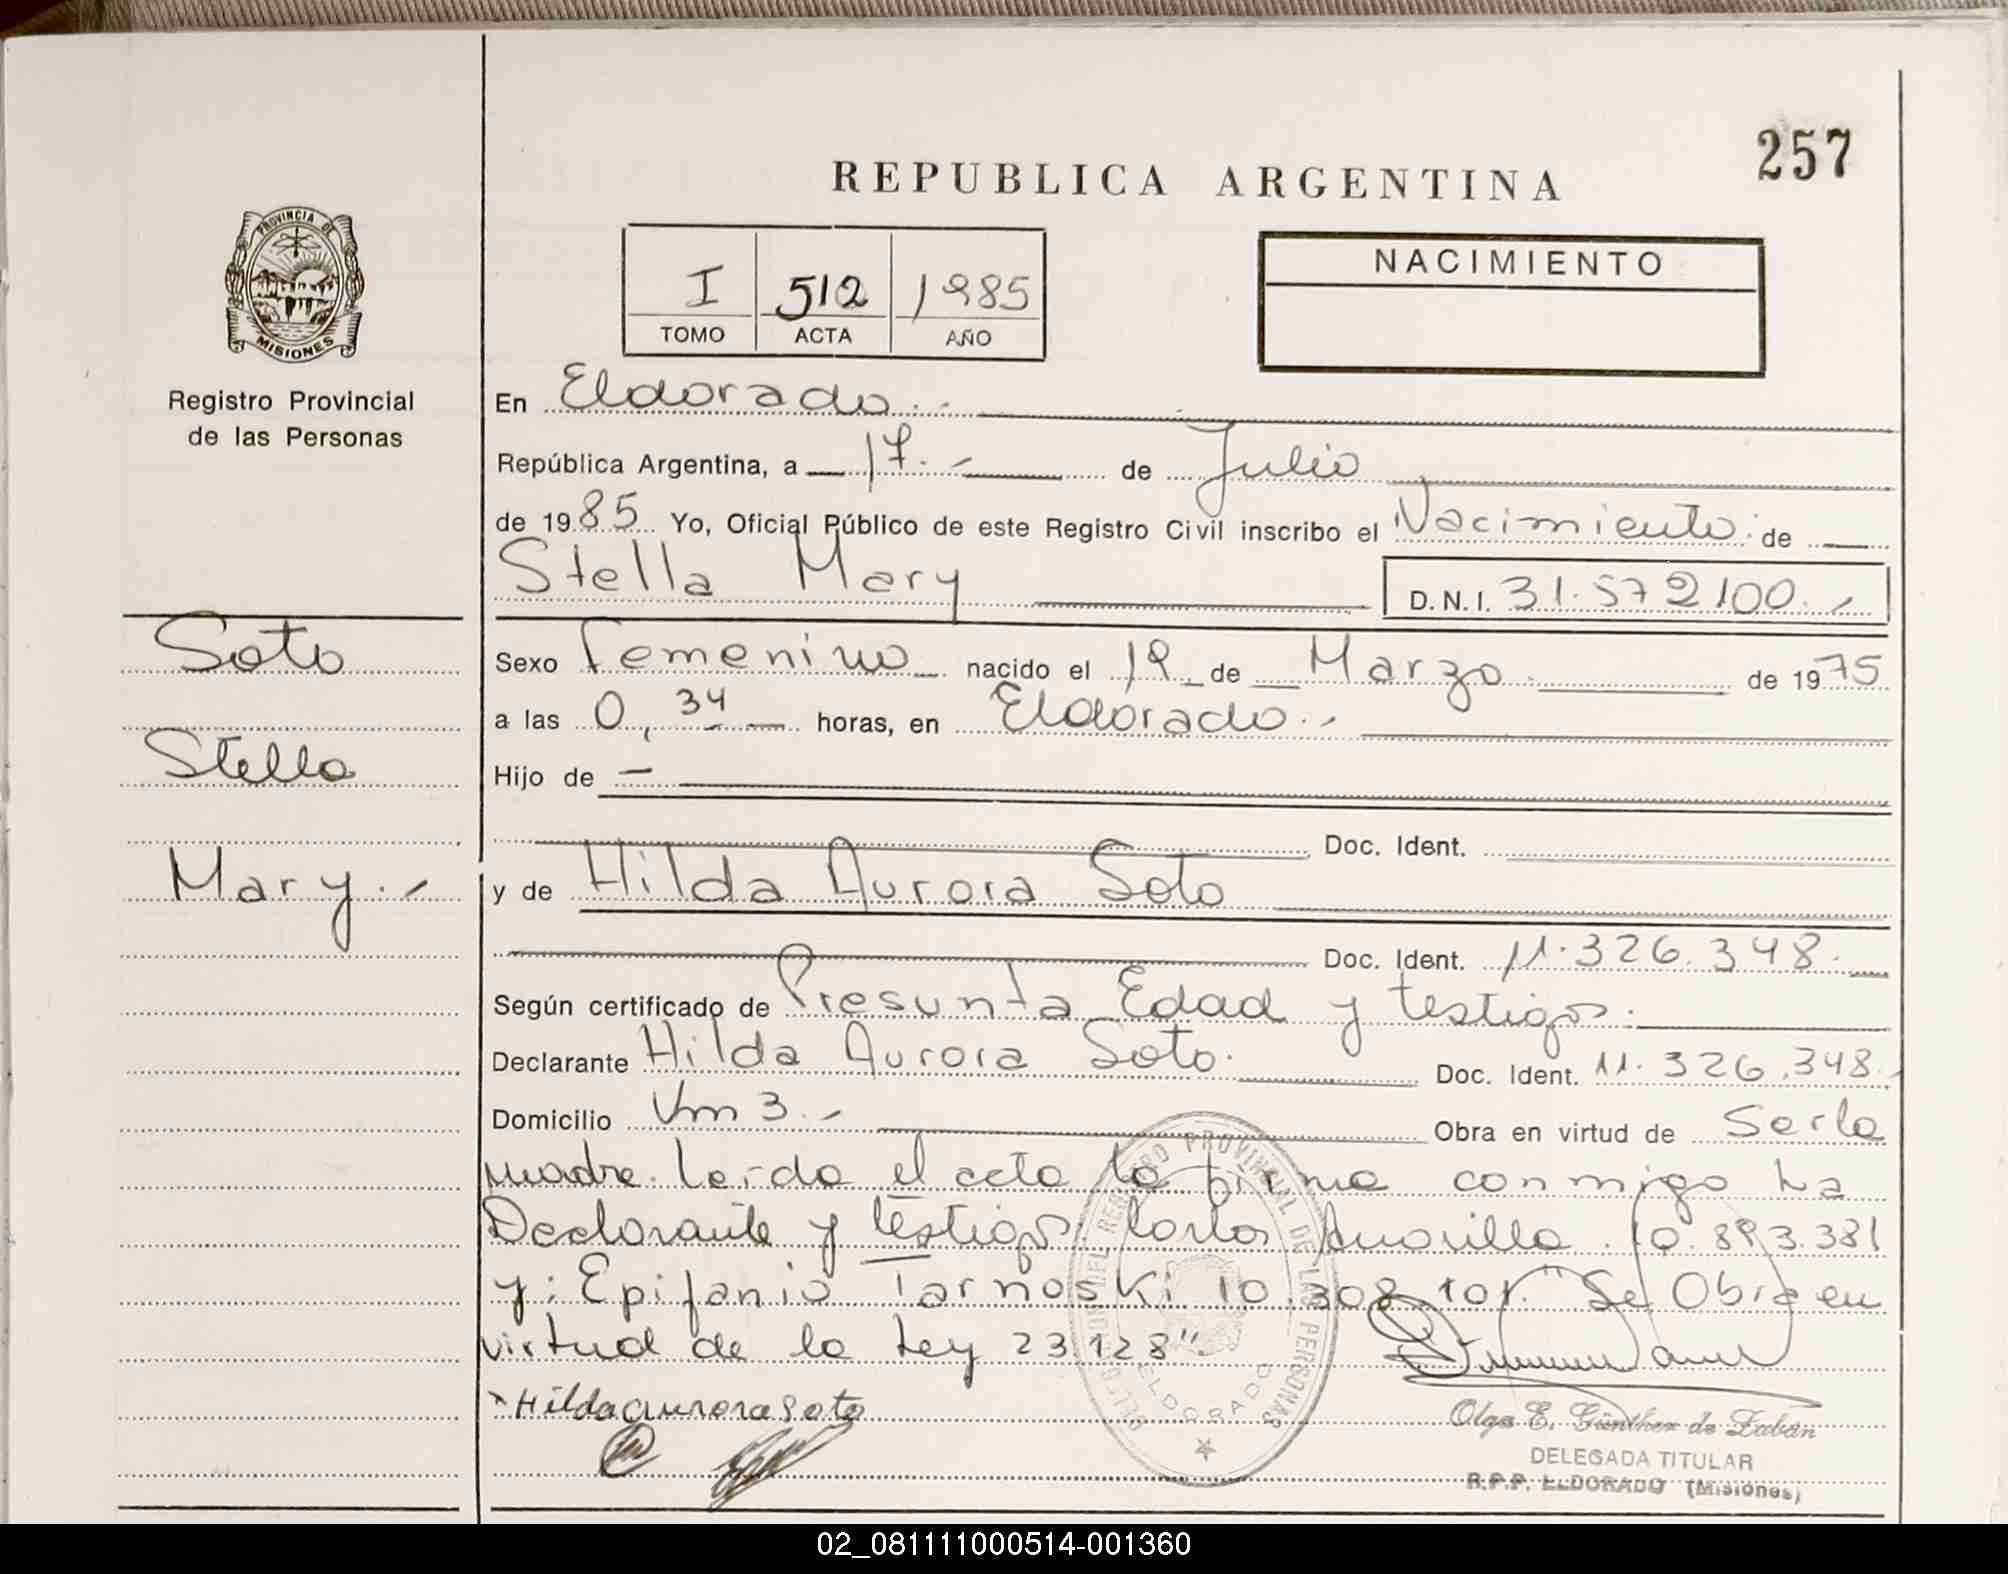 257
REPUBLICA ARGENTINA
PROVINCIA DE
MISIONES
Registro Provincial
de las Personas
I 512 1985
TOMO ACTA AÑO
NACIMIENTO
En Eldorado.-
República Argentina, a 17.- de Julio
de 1985 Yo, Oficial Público de este Registro Civil inscribo el Nacimiento de
Stella Mary D.N.I. 31.572100.-
Soto
Stella
Mary.-
Sexo Femenino nacido el 19 de Marzo de 1975
a las 0,34 horas, en Eldorado.-
Hijo de —
Doc. Ident.
y de Hilda Aurora Soto
Doc. Ident. 11.326.348.
Según certificado de Presunta Edad y testigos.
Declarante Hilda Aurora Soto. Doc. Ident. 11.326.348.
Domicilio Km 3.- Obra en virtud de Serla
madre. Leída el acta la firma conmigo La
Declarante y testigos: Carlos 10.893.381
y: Epifanio Tarnoski 10.308.101. "Se Obra en
virtud de la Ley 23.128".
Hilda aurora Soto
DELEGACION DEL REGISTRO PROVINCIAL DE LAS PERSONAS
ELDORADO
Olga E. Günther de Zabán
DELEGADA TITULAR
R.P.P. ELDORADO (Misiones)
02_081111000514-001360